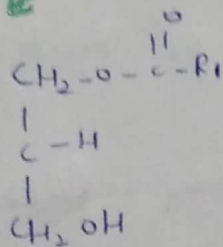 O
||
CH2-O-C-R1
|
C-H
|
CH2OH